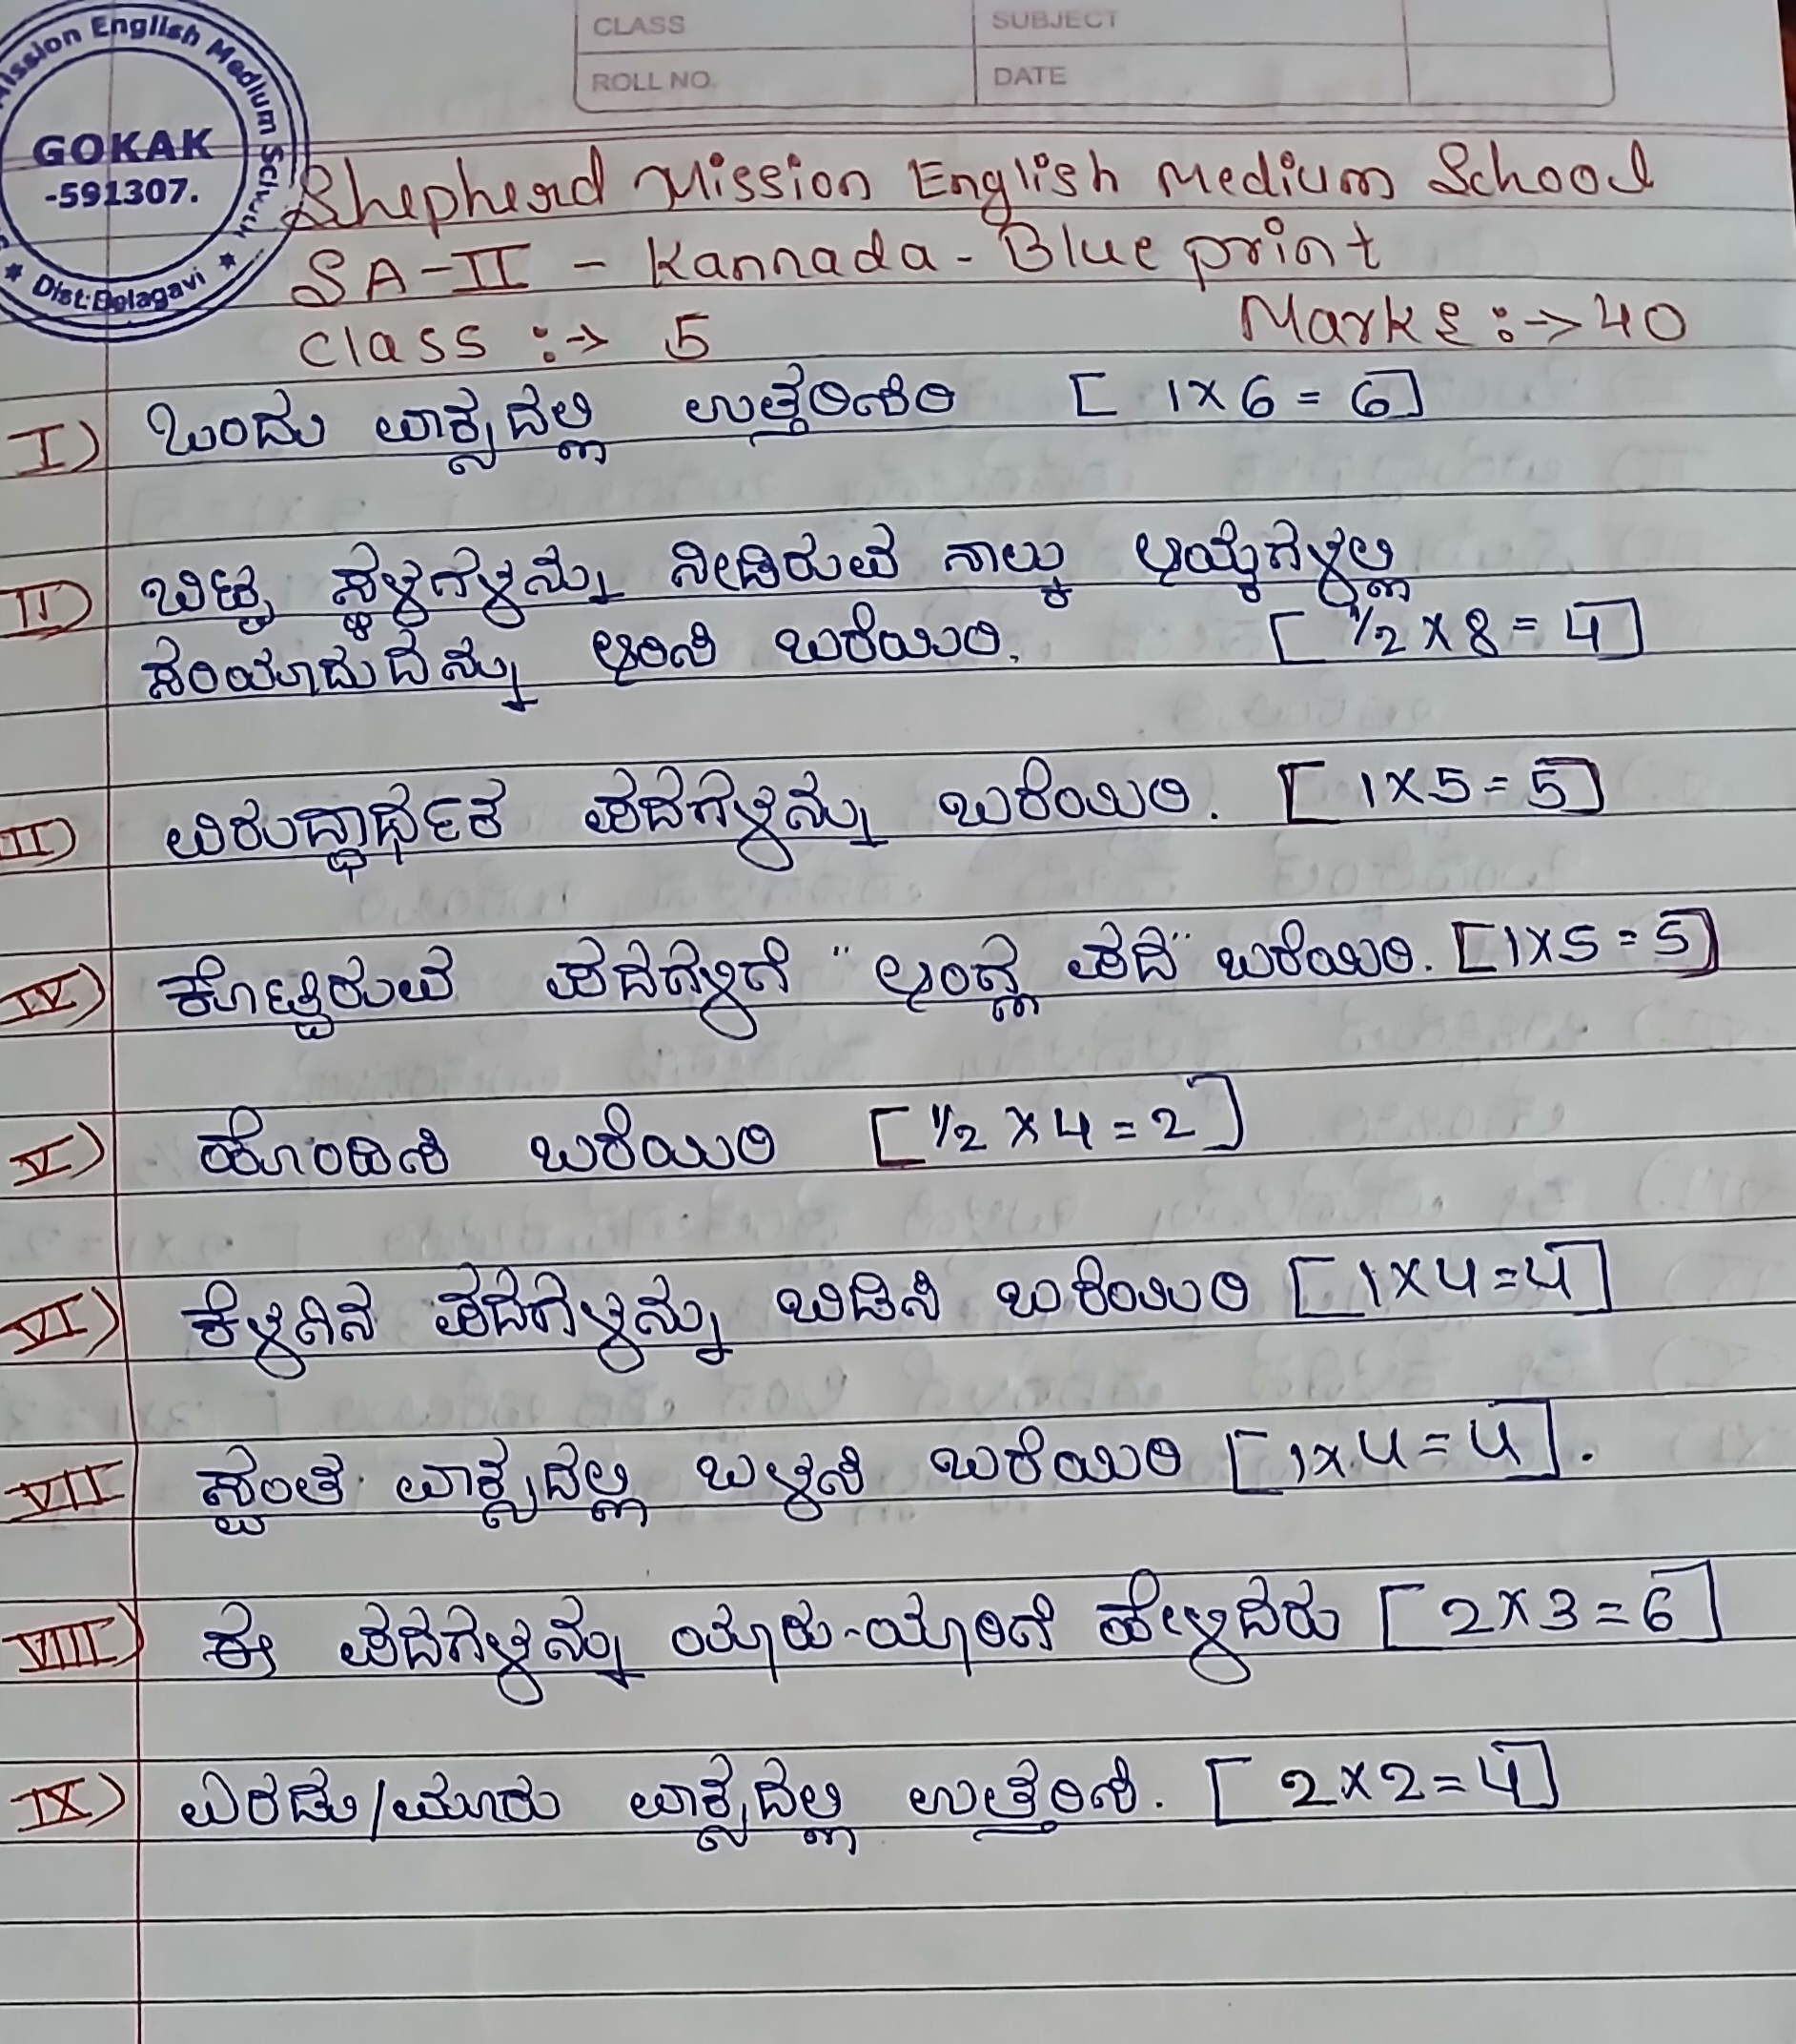 CLASS SUBJECT
ROLL NO. DATE
ission English Medium School
GOKAK
-591307.
Dist: Belagavi
Shepherd Mission English Medium School
SA-II - Kannada - Blue print
Class :-> 5 Marks :-> 40
I) ಒಂದು ವಾಕ್ಯದಲ್ಲಿ ಉತ್ತರಿಸಿರಿ [ 1x6 = 6]
II) ಬಿಟ್ಟ ಸ್ಥಳಗಳನ್ನು ನೀಡಿರುವ ನಾಲ್ಕು ಆಯ್ಕೆಗಳಲ್ಲಿ
ಸರಿಯಾದುದನ್ನು ಆರಿಸಿ ಬರೆಯಿರಿ. [ ½ x 8 = 4]
III) ವಿರುದ್ಧಾರ್ಥಕ ಪದಗಳನ್ನು ಬರೆಯಿರಿ. [ 1x5 = 5]
IV) ಕೊಟ್ಟಿರುವ ಪದಗಳಿಗೆ "ಅಂತ್ಯ ಪದ" ಬರೆಯಿರಿ. [1x5 = 5]
V) ಹೊಂದಿಸಿ ಬರೆಯಿರಿ [½ x 4 = 2]
VI) ಕೆಳಗಿನ ಪದಗಳನ್ನು ಬಿಡಿಸಿ ಬರೆಯಿರಿ [1x4 = 4]
VII ಸ್ವಂತ ವಾಕ್ಯದಲ್ಲಿ ಬಳಸಿ ಬರೆಯಿರಿ [1x4 = 4].
VIII) ಈ ಪದಗಳನ್ನು ಯಾರು-ಯಾರಿಗೆ ಹೇಳಿದರು [2x3 = 6]
IX) ಎರಡು/ಮೂರು ವಾಕ್ಯದಲ್ಲಿ ಉತ್ತರಿಸಿ. [ 2x2 = 4]